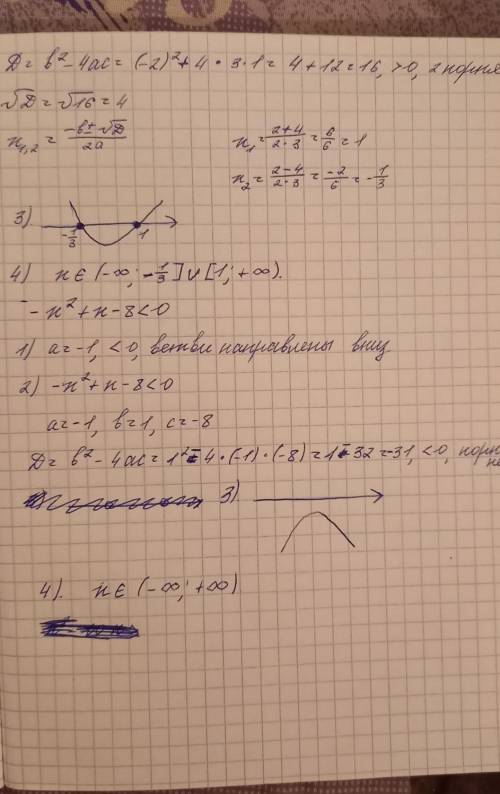 D = b² - 4ac = (-2)² + 4 · 3 · 1 = 4 + 12 = 16, >0, 2 корня
√D = √16 = 4
x₁,₂ = (-b ± √D)/2a
x₁ = (2+4)/(2·3) = 6/6 = 1
x₂ = (2-4)/(2·3) = -2/6 = -1/3
3)
-1/3 1
4) x ∈ (-∞; -1/3] ∪ [1; +∞).
-x² + x - 8 < 0
1) a = -1, <0, ветви направлены вниз
2) -x² + x - 8 < 0
a = -1, b = 1, c = -8
D = b² - 4ac = 1² - 4 · (-1) · (-8) = 1 - 32 = -31, <0,
3)
4). x ∈ (-∞; +∞)